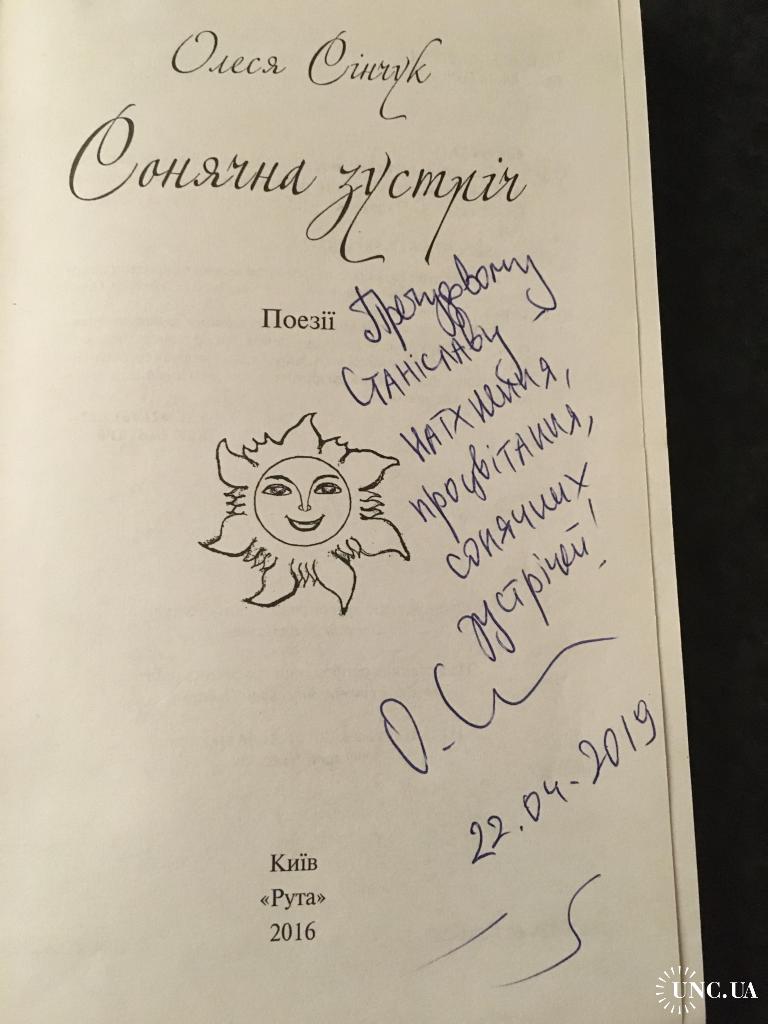 Олеся Сінчук
Сонячна зустріч
Поезії
Пречудовому
Станіславу –
натхнення,
процвітання,
сонячних
зустрічей!
О. С
22.04.2019
Київ
«Рута»
2016
UNC.UA